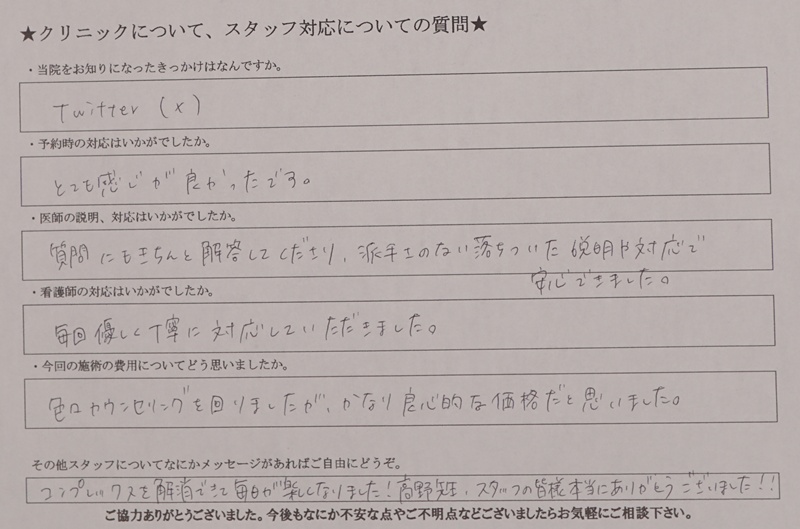 ★クリニックについて、スタッフ対応についての質問★
・当院をお知りになったきっかけはなんですか。
Twitter (X)
・予約時の対応はいかがでしたか。
とても感じが良かったです。
・医師の説明、対応はいかがでしたか。
質問にもきちんと解答してくださり、派手さのない落ちついた説明や対応で
安心できました。
・看護師の対応はいかがでしたか。
毎回優しく丁寧に対応していただきました。
・今回の施術の費用についてどう思いましたか。
色々カウンセリングを回りましたが、かなり良心的な価格だと思いました。
その他スタッフについてなにかメッセージがあればご自由にどうぞ。
コンプレックスを解消できて毎日が楽しくなりました!高野先生、スタッフの皆様本当にありがとうございました!!
ご協力ありがとうございました。今後もなにか不安な点やご不明点などございましたらお気軽にご相談下さい。